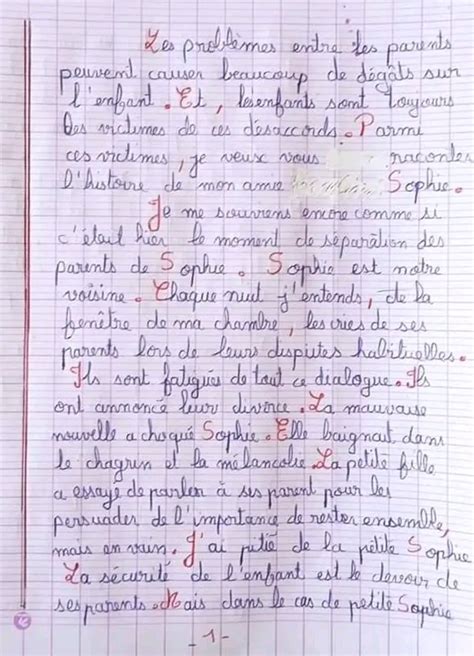 Les problèmes entre les parents
peuvent causer beaucoup de dégâts sur
l'enfant. Et, les enfants sont toujours
les victimes de ces désaccords. Parmi
ces victimes, je veux vous raconter
l'histoire de mon amie Sophie.
Je me souviens encore comme si
c'était hier le moment de séparation des
parents de Sophie. Sophie est notre
voisine. Chaque nuit j'entends, de la
fenêtre de ma chambre, les cries de ses
parents lors de leurs disputes habituelles.
Ils sont fatigués de tout ce dialogue. Ils
ont annoncé leur divorce. La mauvaise
nouvelle a choqué Sophie. Elle baignat dans
le chagrin et la mélancolie. La petite fille
a essayé de parler à ses parent pour les
persuader de l'importance de rester ensemble,
mais en vain. J'ai pitié de la petite Sophie
La sécurité de l'enfant est le devoir de
ses parents. Mais dans le cas de petite Sophie
- 1 -